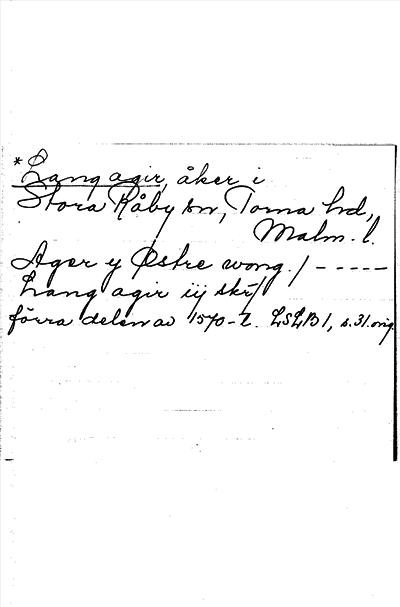 *Lang agir, åker i
Stora Råby sn, Torna hd,
Malm. l.
Ager y Østre wong./-----
Lang agir iij skr/
förra delen av 1570-t. LSLB 1, s. 31. orig.